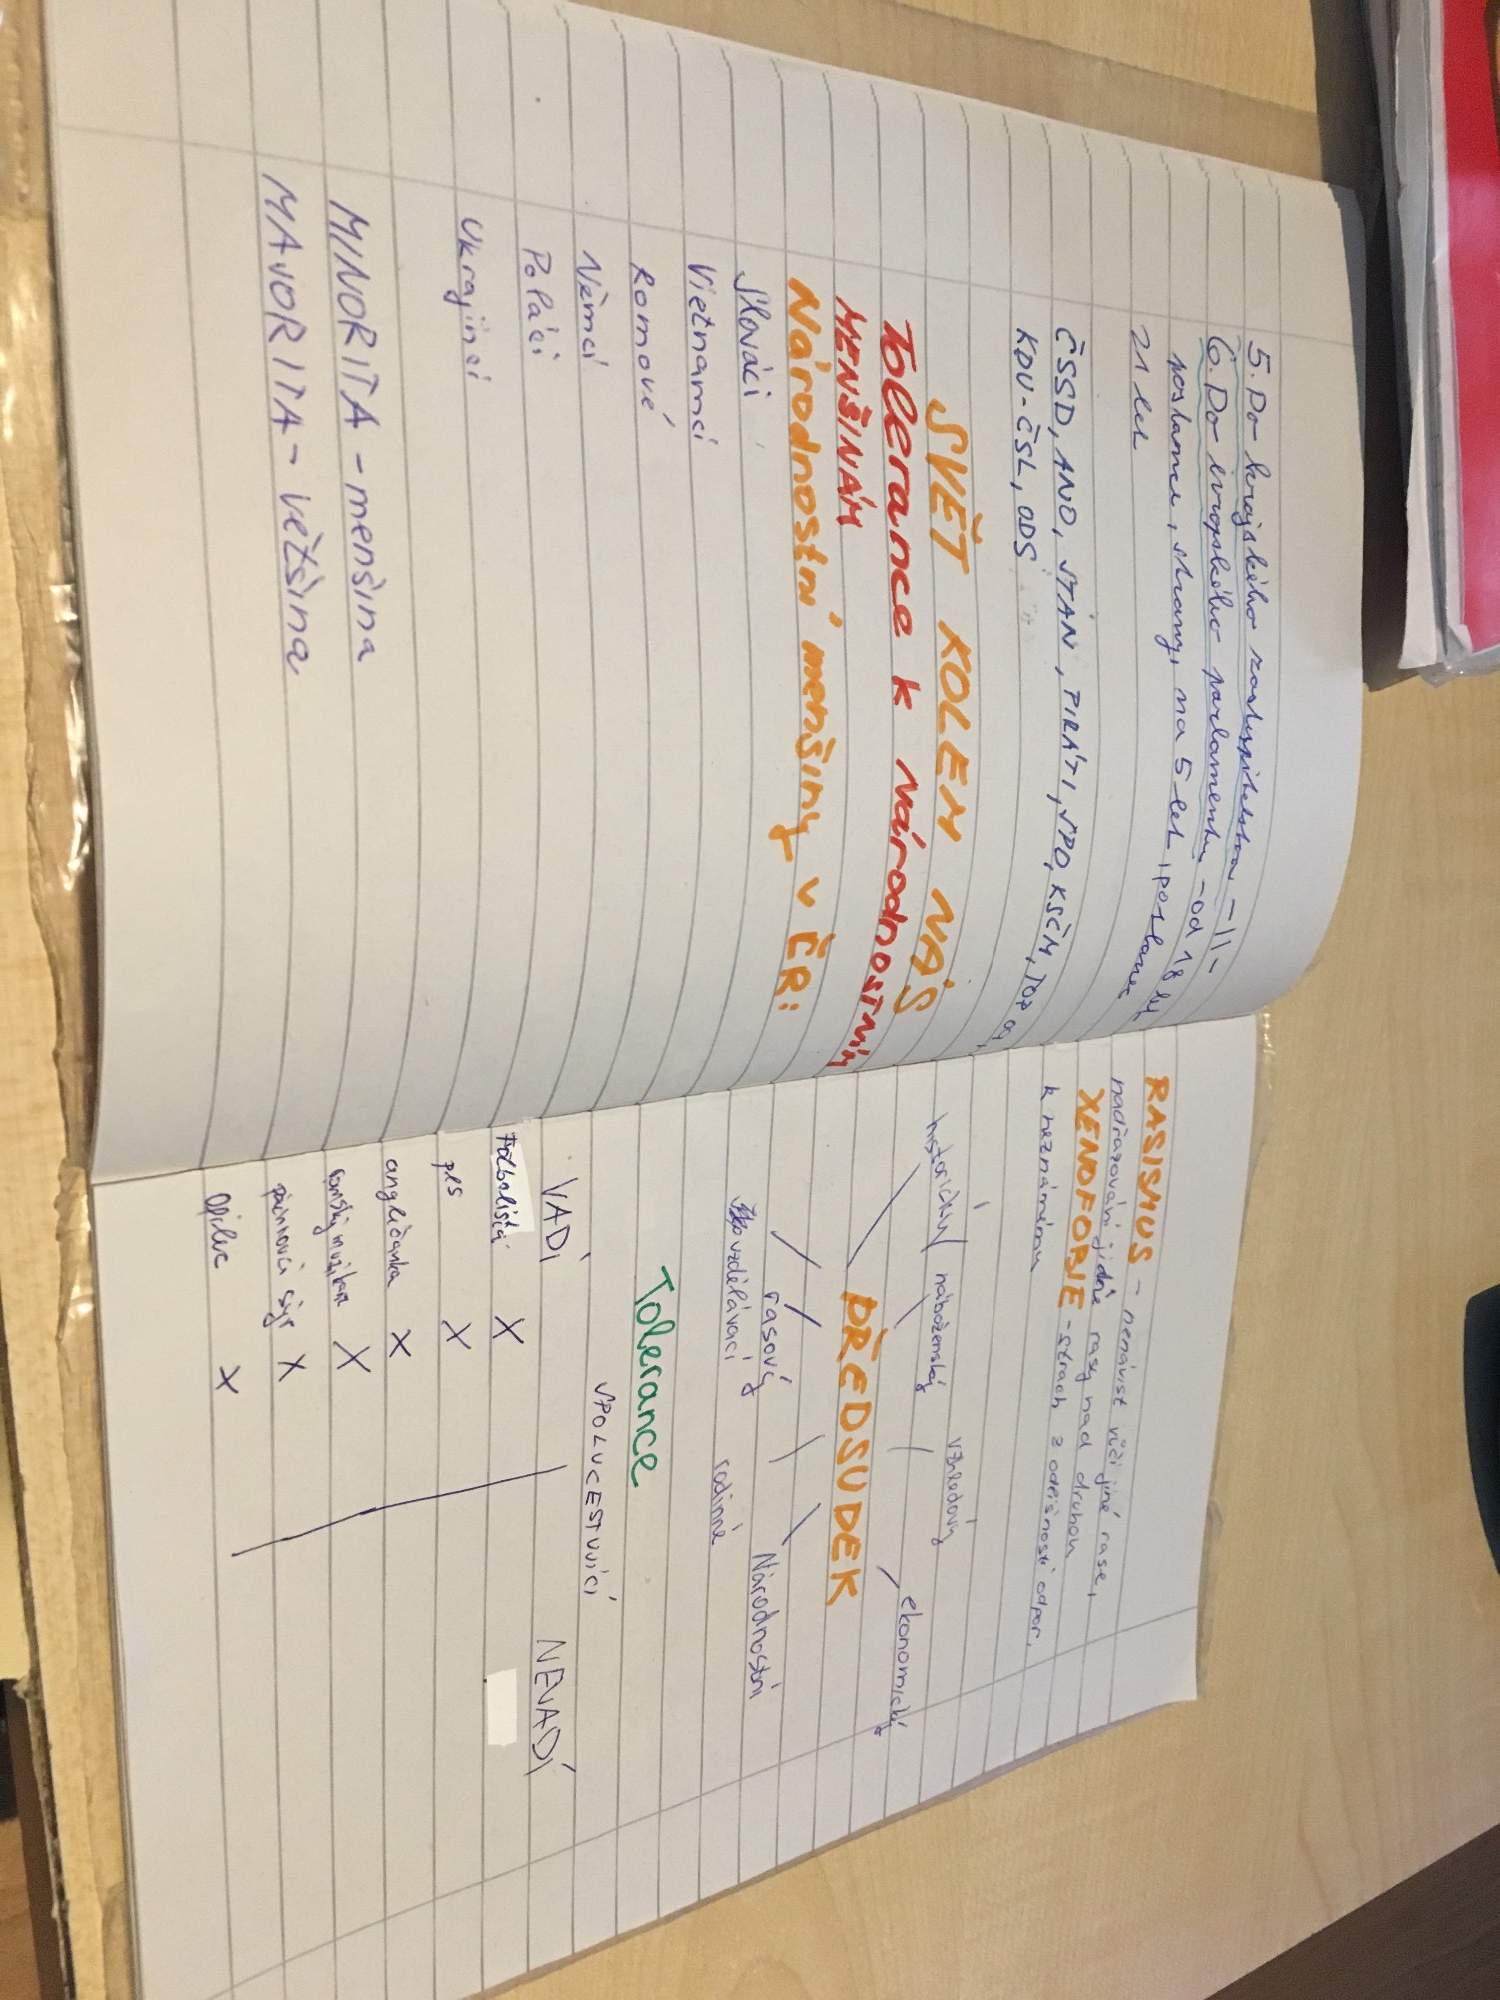 5. Do krajského zastupitelstva - 11 -
6. Do evropského parlamentu - od 18 let
poslance, strany, na 5 let, poslanec
21 let
ČSSD, ANO, STAN, PIRÁTI, SPO, KSČM, TOP 09,
KDU-ČSL, ODS
SVĚT KOLEM NÁS
Tolerance k národnostním
MENŠINÁM
Národnostní menšiny v ČR:
Slováci
Vietnamci
Romové
Němci
Poláci
Ukrajinci
MINORITA - menšina
MAJORITA - většina
RASISMUS - nenávist vůči jiné rase,
nadřazování jedné rasy nad druhou
XENOFOBIE - strach z odlišnosti odpor,
k neznámému
historický náboženský vzhledový
ekonomický
PŘEDSUDEK
rasový Národnostní
vzdělávací rodinné
Tolerance
SPOLUCESTUJÍCÍ
VADÍ NEVADÍ
Fotbalisti X
pes X
angličanka X
romský muzikant X
sýr X
opilec X